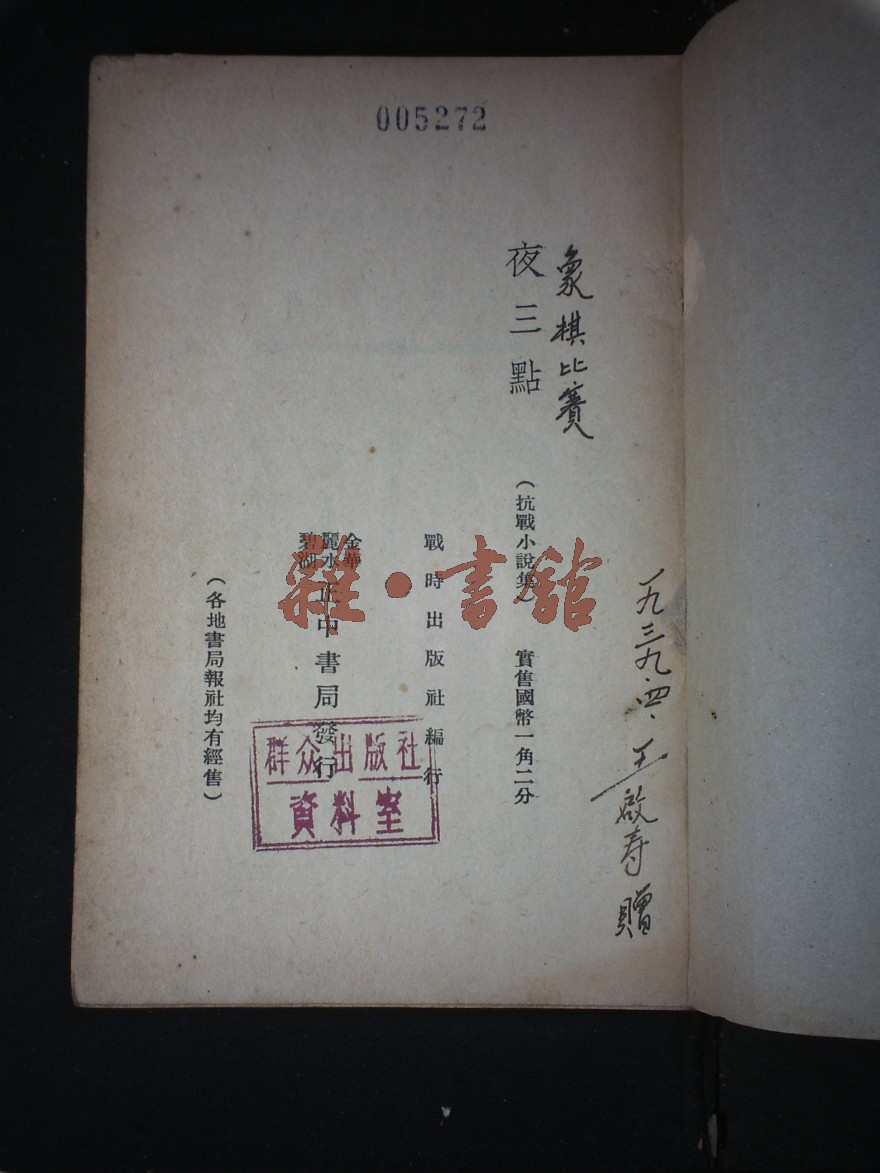 005272
一九三九.四.王啟寿贈
象棋比賽
夜三點
（抗戰小說集） 實售國幣一角二分
戰時出版社編行
金華
麗水
碧湖
正中書局發行
（各地書局報社均有經售）
群众出版社
資料室
雜·書館